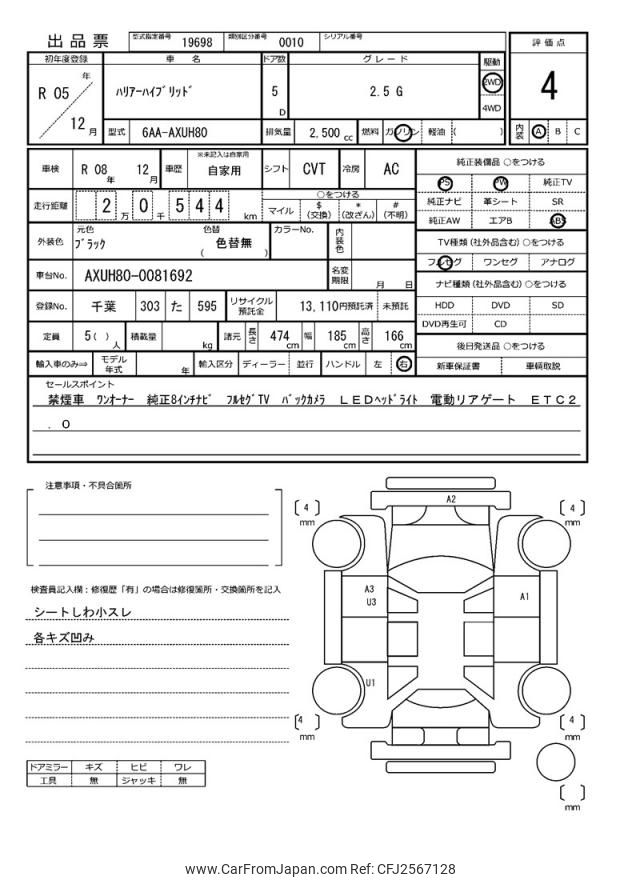 出品票
型式指定番号 19698 類別区分番号 0010 シリアル番号
評価点
4
内装 A B C
初年度登録 車名 ドア数 グレード 駆動
R 05 年 12 月 ハリアーハイブリッド 5 D 2.5 G 2WD 4WD
型式 6AA-AXUH80 排気量 2,500 cc 燃料 ガソリン 軽油 ( )
車検 R 08 年 12 月 車歴 ※未記入は自家用 自家用 シフト CVT 冷房 AC
走行距離 2 万 0 千 5 4 4 km
○をつける
マイル $ (交換) * (改ざん) # (不明)
外装色 元色 ブラック 色替 ( 色替無 ) カラーNo. 内装色
車台No. AXUH80-0081692 名変期限 月 日
登録No. 千葉 303 た 595 リサイクル預託金 13,110円預託済 未預託
定員 5( ) 人 積載量 kg 諸元 長さ 474 cm 幅 185 cm 高さ 166 cm
輸入車のみ⇒ モデル年式 年 輸入区分 ディーラー 並行 ハンドル 左 右
純正装備品 ○をつける
PS PW 純正TV
純正ナビ 革シート SR
純正AW エアB ABS
TV種類(社外品含む) ○をつける
フルセグ ワンセグ アナログ
ナビ種類(社外品含む) ○をつける
HDD DVD SD
DVD再生可 CD
後日発送品 ○をつける
新車保証書 車輌取説
セールスポイント
禁煙車 ワンオーナー 純正8インチナビ フルセグTV バックカメラ LEDヘッドライト 電動リアゲート ETC2
.0
注意事項・不具合箇所
検査員記入欄:修復歴「有」の場合は修復箇所・交換箇所を記入
シートしわ小スレ
各キズ凹み
ドアミラー キズ ヒビ ワレ
工具 無 ジャッキ 無
A2
[ 4 ] mm
[ 4 ] mm
A3
U3
A1
U1
[ 4 ] mm
[ 4 ] mm
[ ] mm
www.CarFromJapan.com Ref: CFJ2567128